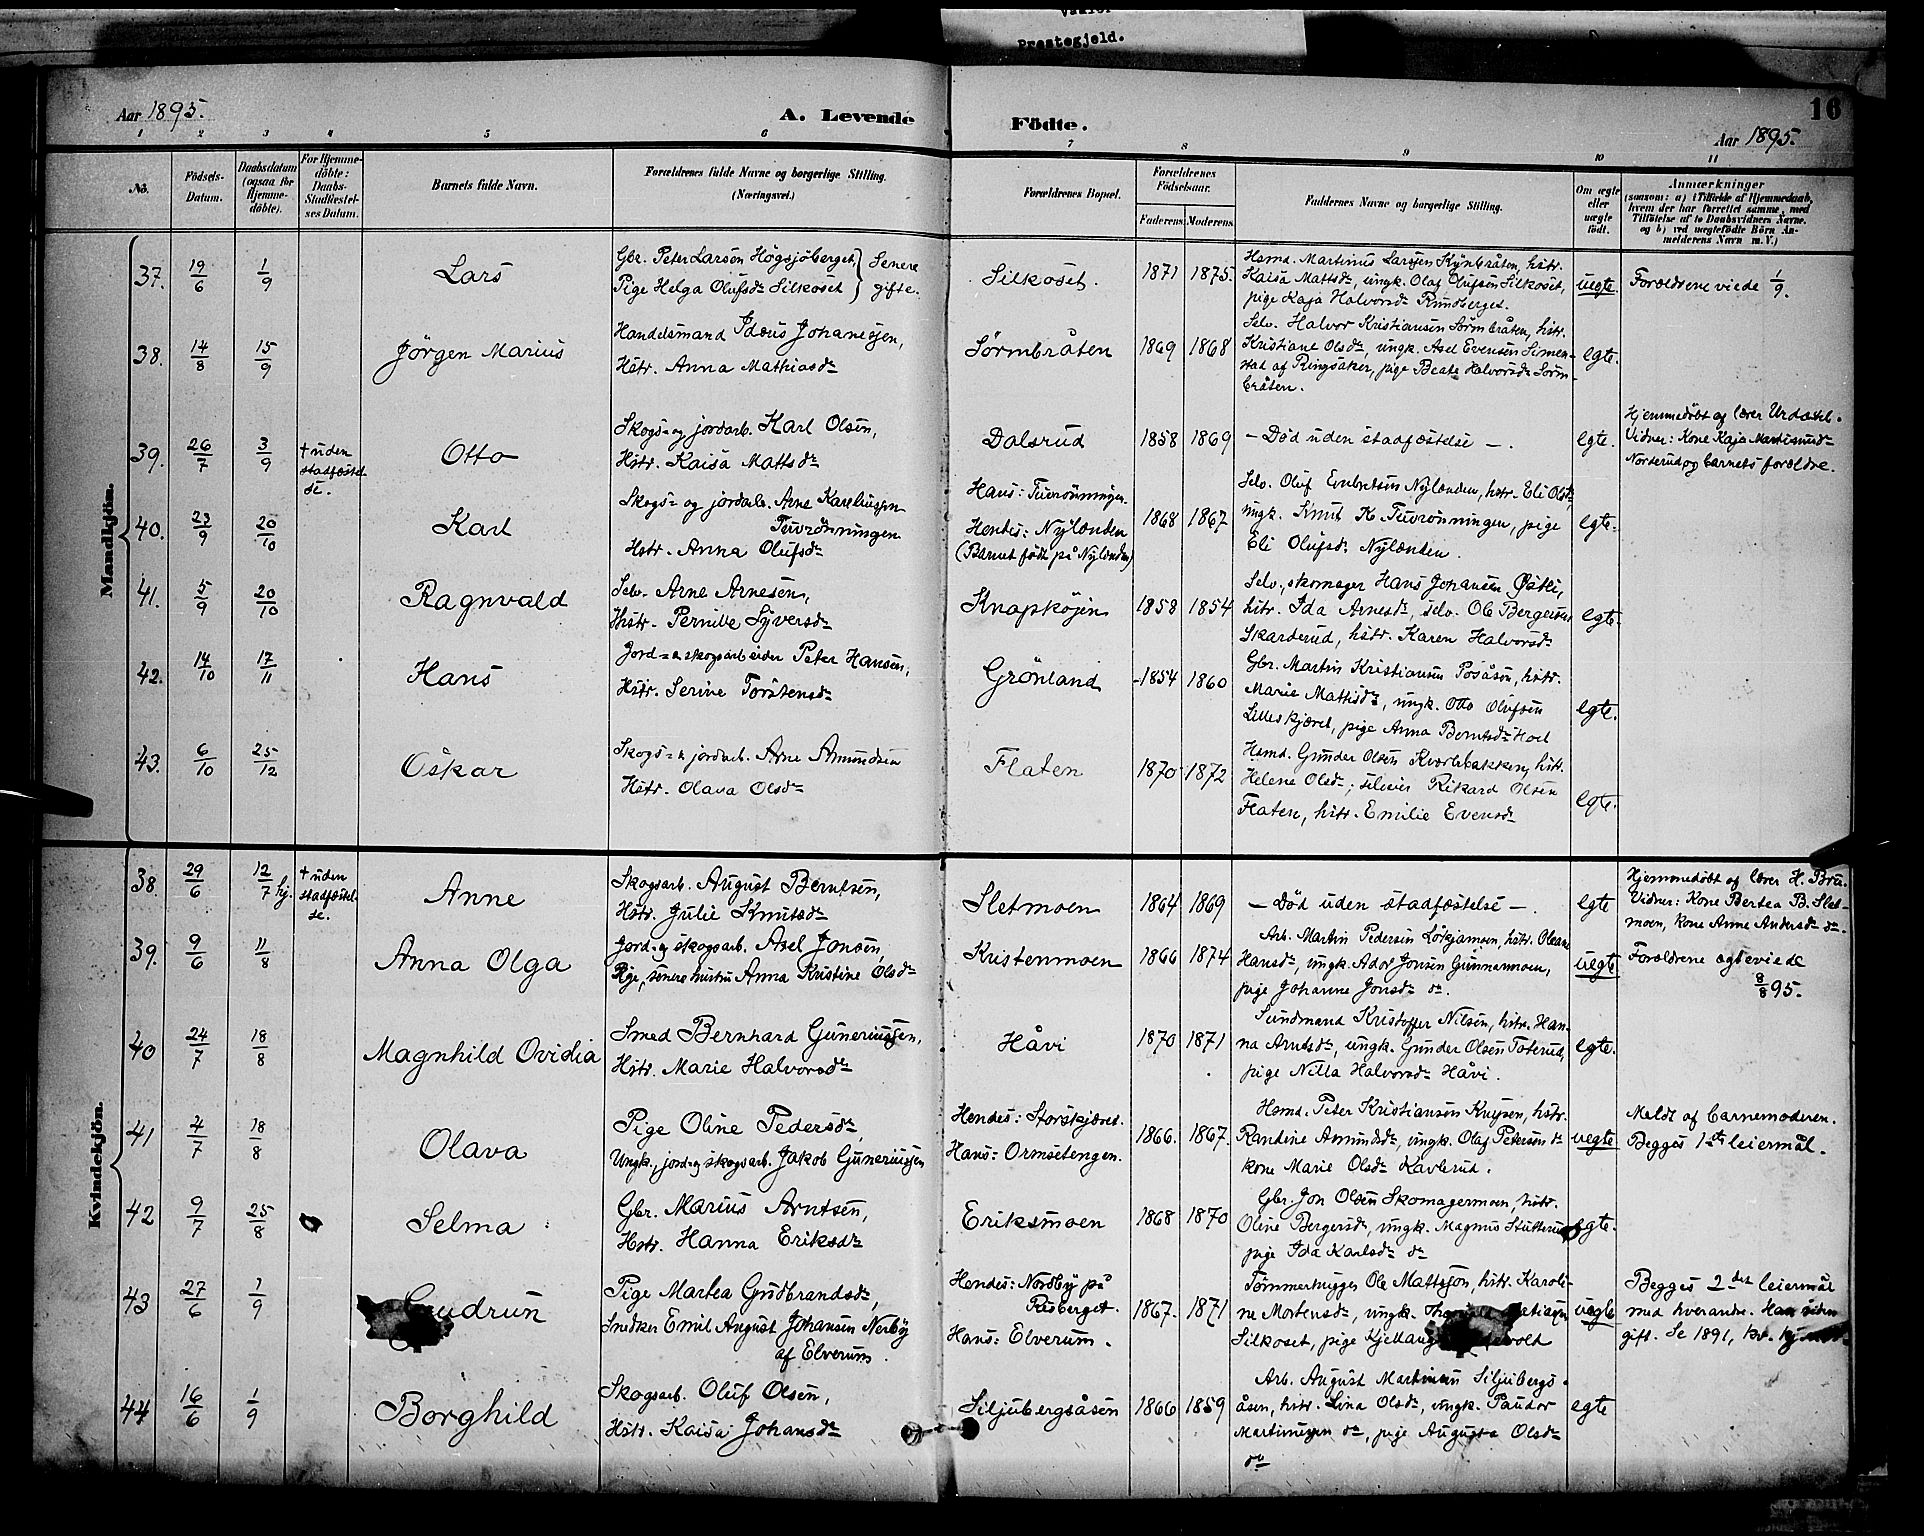 Prestegjeld.
Aar 1895.
A. Levende
Födte.
16
Aar 1895.
1 2 3 4 5 6 7 8 9 10 11
No.
Födsels-Datum.
Daabsdatum (ogsaa for Hjemme-döbte).
For Hjemme-döbte: Daabs-Stadfæstel-ses Datum.
Barnets fulde Navn.
Forældrenes fulde Navne og borgerlige Stilling.
(Næringsvei.)
Forældrenes Bopæl.
Forældrenes Födselsaar.
Faderens. Moderens.
Faddernes Navne og borgerlige Stilling.
Om ægte eller uægte født.
Anmærkninger
(saasom: a) i Tilfælde af Hjemmedaab,
hvem der har forrettet samme, med
Tilföielse af to Daabsvidners Navne.
og b) ved uægtefödte Börn An-
melderens Navn m. V.)
Mandkjön.
37. 19/6 1/9 Lars
Gbr. Peter Larsen Högsjöberget,
Pige Helga Olufsdr Silkoset } Senere gifte.
Silkoset. 1871 1875.
Hsmd. Martinus Larssen Kynbråten, hstr.
Kaisa Mattsdr, ungk. Olaf Olufsen Silkoset,
pige Kaja Halvorsdr Rundberget.
uegte. Forældrene viede 1/9.
38. 14/8 15/9 Jörgen Marius
Handelsmand Idæus Johanesjen,
Hstr. Anna Mathiasdr
Sørmbråten 1869 1868
Selv. Halvor Kristiansen Sørmbråten, hstr.
Kristiane Olsdr, ungk. Axel Evensen Simen-
stad af Ringsaker, pige Beate Halvorsdr Sørm-
bråten.
egte.
39. 26/7 3/9 + uden stadfæstel se.
Otto
Skogs- og jordarb. Karl Olsen,
Hstr. Kaisa Mattsdr
Dalsrud 1858 1869
— Død uden stadfæstelse —.
egte.
Hjemmedøbt af lærer Urdætel.
Vidner: Kone Kaja Martinusdr
Norderud og barnets forældre.
40. 23/9 20/10 Karl
Skogs- og jordarb. Arne Kareliussen
Tuvrönningen
Hstr. Anna Olufsdr
Hans: Tuvrönningen.
Hendes: Nylænden
(Barnet født på Nylænden)
1868 1867
Selv. Oluf Embretsen Nylænden, hstr. Eli Olsdr,
ungk. Knut K. Tuvrönningen, pige
Eli Olufsdr Nylænden.
egte.
41. 5/9 20/10 Ragnvald
Selv. Arne Arnesen,
Hstr. Pernille Syversdr
Knapköjen 1858 1854
Selv., skomager Hans Johansen Østli,
hstr. Ida Arnesdr, selv. Ole Bergersen
Skarderud, hstr. Karen Halvorsdr
egte.
42. 14/10 17/11 Hans
Jord- & skogsarbeider Peter Hansen,
Hstr. Serine Torstensdr
Grönland 1854 1860
Gbr. Martin Kristiansen Posåsen, hstr.
Marie Mathisdr, ungk. Otto Olufsen
Lilleskjæret, pige Anna Berntsdr Hoel
egte.
43. 6/10 25/12 Oskar
Skogs- & jordarb. Arne Amundsen
Hstr. Olava Olsdr
Flaten 1870 1872
Hsmd. Gunder Olsen Kværbækken, hstr.
Helene Olsdr; Rikard Olsen
Flaten, hstr. Emilie Evensdr
egte.
Kvindekjön.
38. 29/6 12/7 hj. + uden stadfæstel-se.
Anne
Skogsarb. August Berntsen,
Hstr. Julie Knutsdr
Sletmoen 1864 1869
— Død uden stadfæstelse —.
egte
Hjemmedöbt af lærer H. Bru.
Vidner: Kone Bertea B. Slet-
moen, kone Anne Andersdr do.
39. 9/6 11/8 Anna Olga
Jord- og skogsarb. Axel Jonsen,
Pige, senere hustru Anna Kristine Olsdr
Kristenmoen 1866 1874
Arb. Martin Pedersen Løkjamoen, hstr. Oleane
Hansdr, ungk. Adolf Jonsen Gunnarmoen,
pige Johanne Jonsdr do.
uegte
Forældrene egteviede
8/8 95.
40 24/7 18/8 Magnhild Ovidia
Smed Bernhard Guneriussen,
Hstr. Marie Halvorsdr
Håvi 1870 1871
Sundmand Kristoffer Nilsen, hstr. Han-
na Arntsdr, ungk. Gunder Olsen Toterud,
pige Nilla Halvorsdr Håvi.
egte.
41 4/7 18/8 Olava
Pige Oline Pedersdr,
Ungk., jord- og skogsarb. Jakob Guneriussen
Hendes: Storskjæret.
Hans: Ormsetengen.
1866. 1867.
Hsmd. Peter Kristiansen Knysen, hstr.
Randine Amundsdr, ungk. Olaf Petersen do
kone Marie Olsdr Kavlerud.
uegte
Meldt af barnemoderen.
Begges 1ste leiermål.
42 9/7 25/8 Selma
Gbr. Marius Arntsen,
Hstr. Hanna Eriksdr
Eriksmoen 1868 1870
Gbr. Jon Olsen Skomagermoen, hstr.
Oline Bergersdr, ungk. Magnus Stutterud
pige Ida Karlsdr do
egte.
43 27/6 1/9 Gudrun
Pige Martea Gudbrandsdr,
Snedker Emil August Johansen Nerby
af Elverum.
Hendes: Nordby på
Risberget.
Hans: Elverum.
1867. 1871
Tømmerhugger Ole Mattssøn, hstr. Karoli-
ne Mortensdr, ungk.
Silkoset, pige
uegte
Begges 2det leiermål
med hverandre. Han siden
gift. Se 1891, kv. kj.
44 16/6 1/9 Borghild
Skogsarb. Oluf Olsen,
Hstr. Kaisa Johansdr
Siljubergsåsen 1866 1859
Arb. August Martinsen Siljubergs-
åsen, hstr. Lina Olsdr, ungk. Paudor
Martinsen do, pige Augusta Olsdr
do
egte